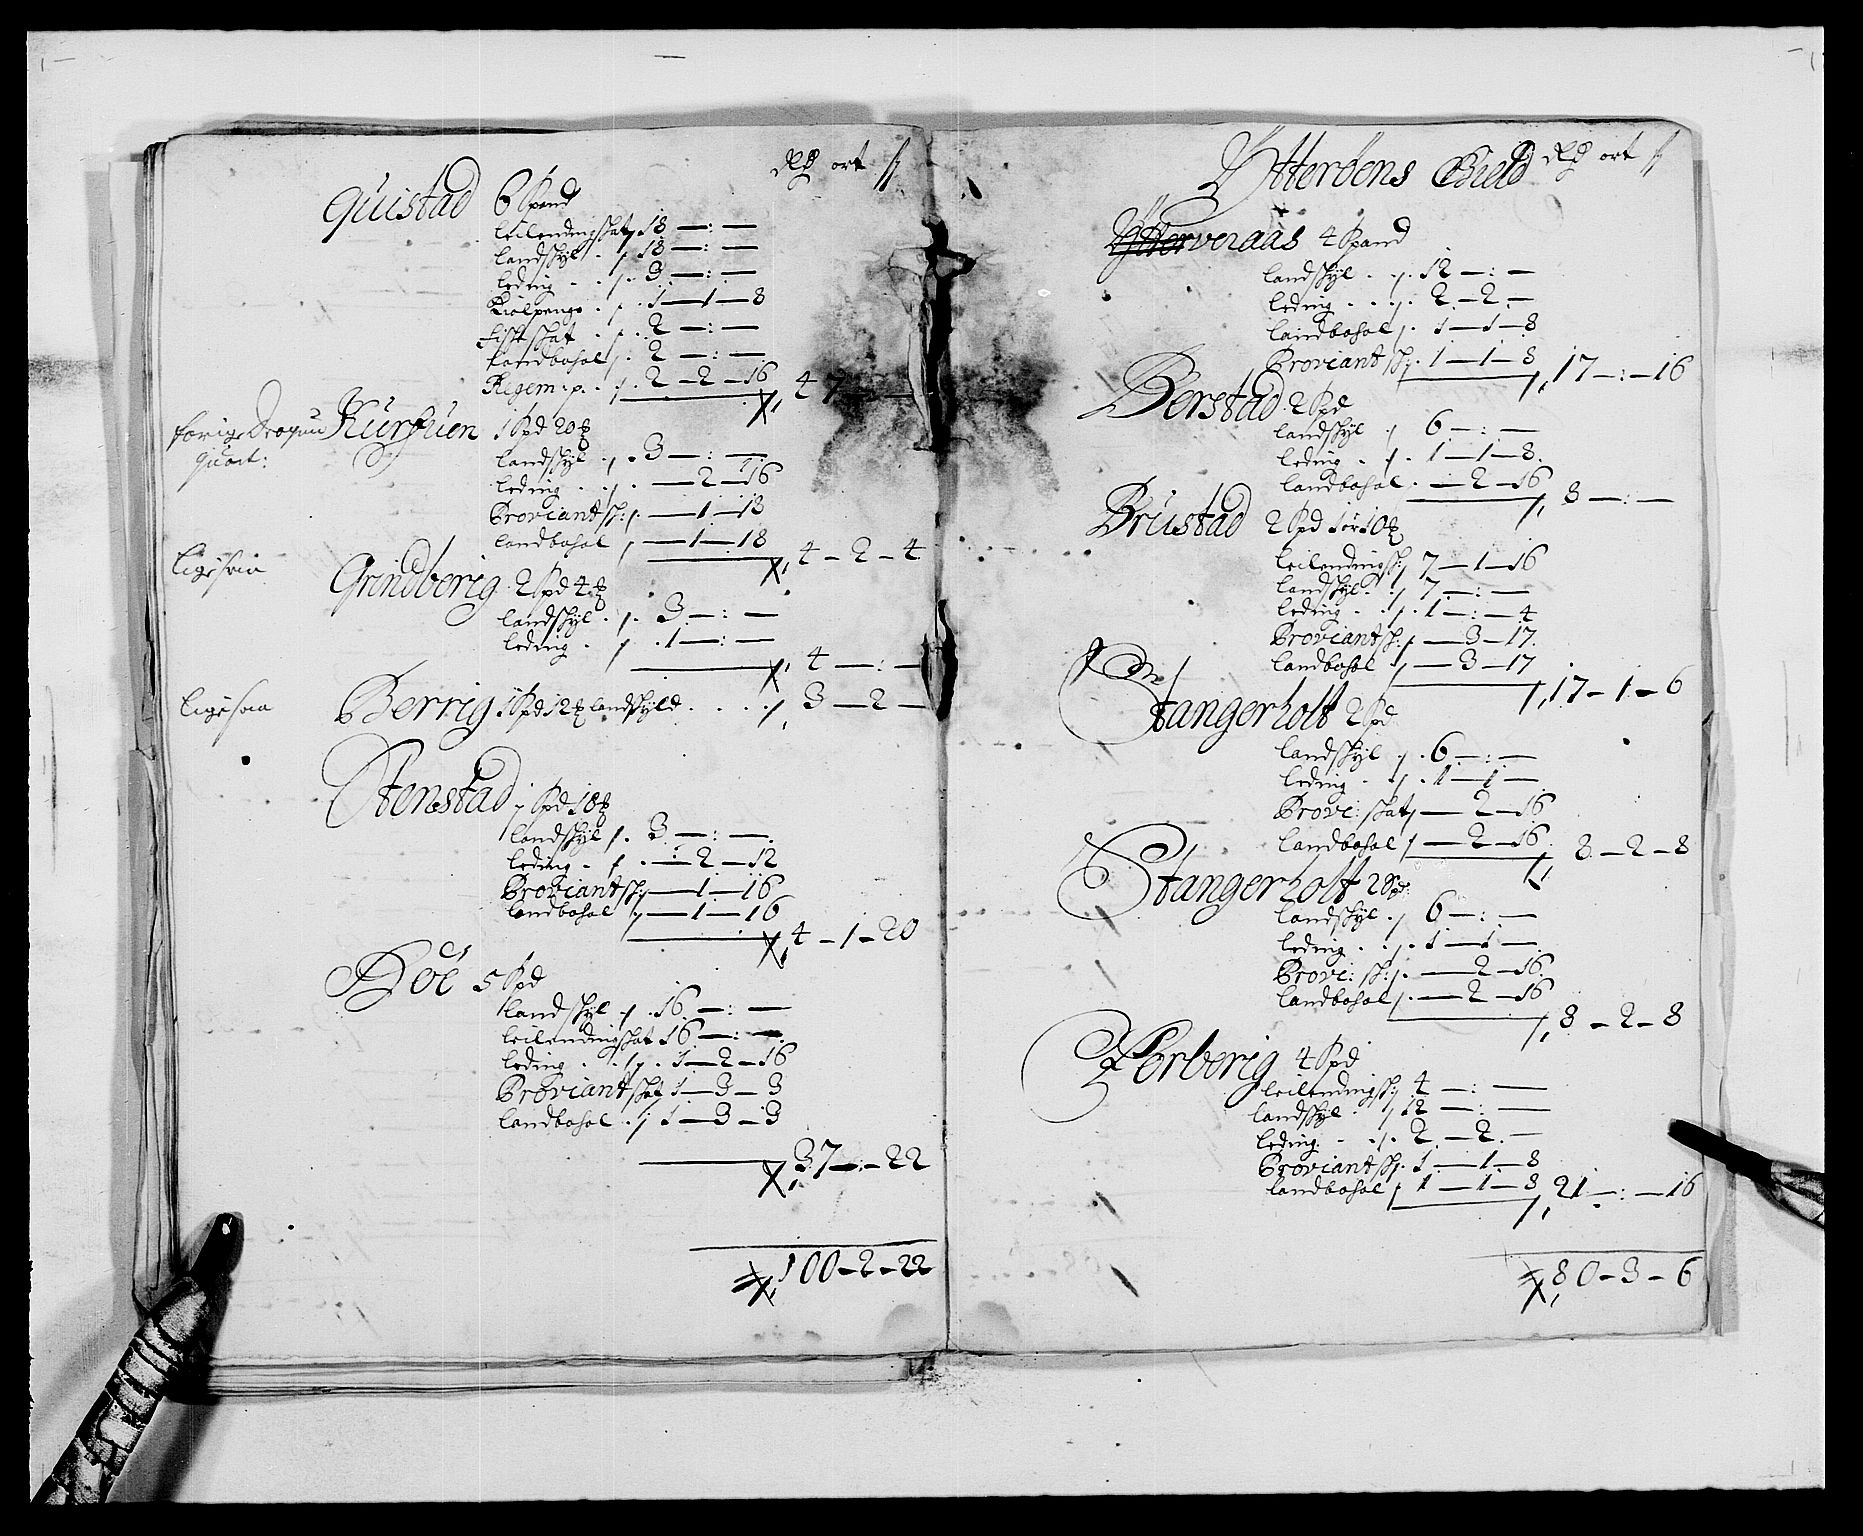 Rdr ort ß
Quistad 6 Spand
leilendingschat 18 — : —
landschyl 18 — : —
leding 3 — : —
Holpenge 1 — 1 — 8
Fischschat 2 — : —
landbohol 2 — : —
Regem: p. 2 — 2 — 16 47
forige Dragun quart:
1 Spd 20
landschyl 3 — : —
leding — 2 — 16
Proviant sch: — 1 — 18
landbohol — 1 — 18 4 — 2 — 4
ligesaa
Grindberig 2 Spd 4
landschyl 3 — : —
leding 1 — : —
4 — : —
ligesaa
Berrig 1 Spd 12 landschyld 3 — 2 —
Stenstad 1 Spd 18
landschyl 3 — : —
leding — 2 — 12
Proviantsch: — 1 — 16
landbohol — 1 — 16
4 — 1 — 20
Böe 5 Spd
landschyl 16 — : —
leilendingschat 16 — : —
leding 1 — 2 — 16
Proviantschat 1 — 3 — 3
landbohol 1 — 3 — 3
37 — : — 22
100 — 2 — 22
Ytteröens Gield Rdr ort ß
veraas 4 Spand
landschyl 12 — : —
leding 2 — 2 —
landbohol 1 — 1 — 8
Proviantsch: 1 — 1 — 8 17 — : — 16
Berstad 2 Spd
landschyl 6 — : —
leding 1 — 1 — 8
landbohol — 2 — 16
8 — : —
Brustad 2 Spd 1 ör 10
leilendingsch: 7 — 1 — 16
landschyl 7 — : —
leding 1 — : — 4
Proviantsch: — 3 — 17
landbohol — 3 — 17
17 — 1 — 6
Stangerholt 2 Spd
landschyl 6 — : —
leding 1 — 1 —
Provi: schat — 2 — 16
landbohol — 2 — 16 8 — 2 — 8
Stangerholt 2 Spd:
landschyl 6 — : —
leding 1 — 1 —
Provi: sch: — 2 — 16
landbohol — 2 — 16
8 — 2 — 8
4 Spd
leilendingsch: 4 — : —
landschyl 12 — : —
leding 2 — 2 —
Proviantsch: 1 — 1 — 8
landbohol 1 — 1 — 8 21 — : — 16
80 — 3 — 6